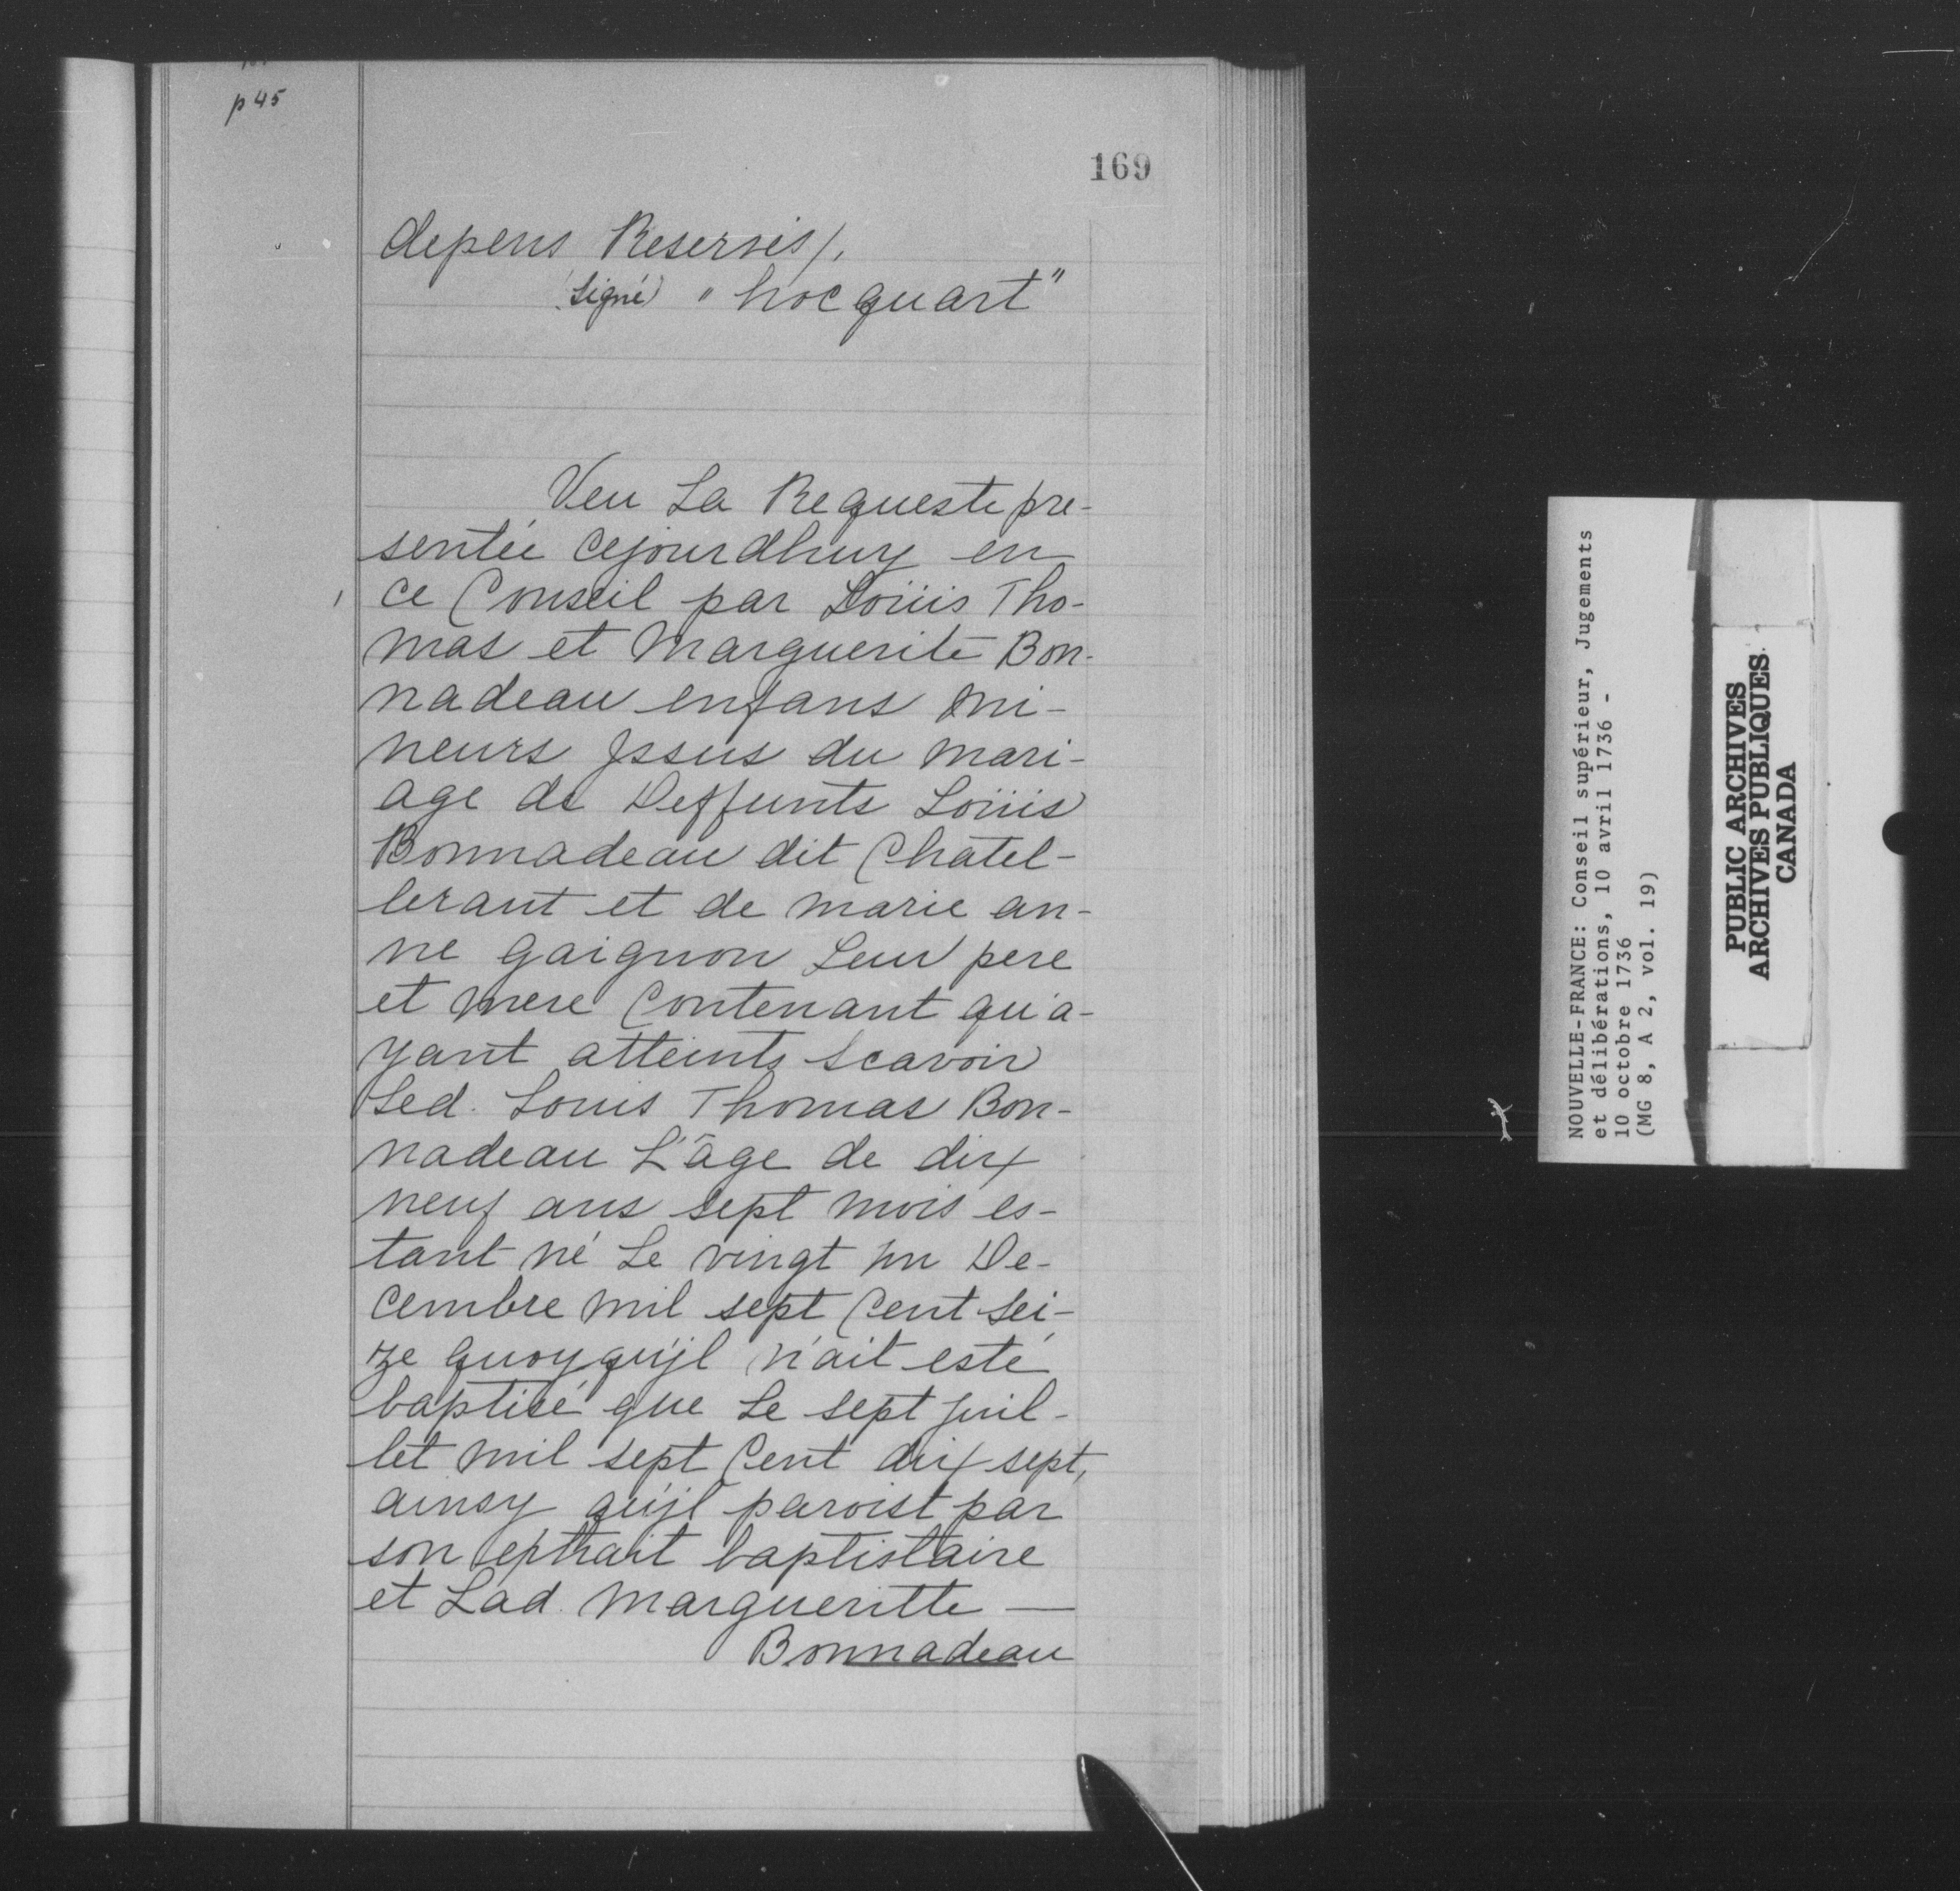 p 45
169
depens Reservés/.
(signé) "hocquart"
Veu La Requeste pre-
sentée cejourdhuy en
ce Conseil par Loüis Tho-
mas et Marguerite Bon-
nadeau enfans mi-
neurs Jssus du mari-
age de Deffunts Loüis
Bonnadeau dit Chatel-
leraut et de marie an-
ne gaignon Leur pere
et mere Contenant qu'a-
yant atteints scavoir
Led. Louis Thomas Bon-
nadeau L'âge de dix
neuf ans sept mois es-
tant né Le vingt un De-
cembre mil sept Cent sei-
ze quoyqu'jl n'ait esté
baptisé que Le sept juil-
let mil sept Cent dix sept,
ainsy qu'jl paroist par
son extrait baptistaire
et Lad. Margueritte —
Bonnadeau
NOUVELLE-FRANCE: Conseil supérieur, Jugements
et délibérations, 10 avril 1736 -
10 octobre 1736
(MG 8, A 2, vol. 19)
PUBLIC ARCHIVES
ARCHIVES PUBLIQUES
CANADA